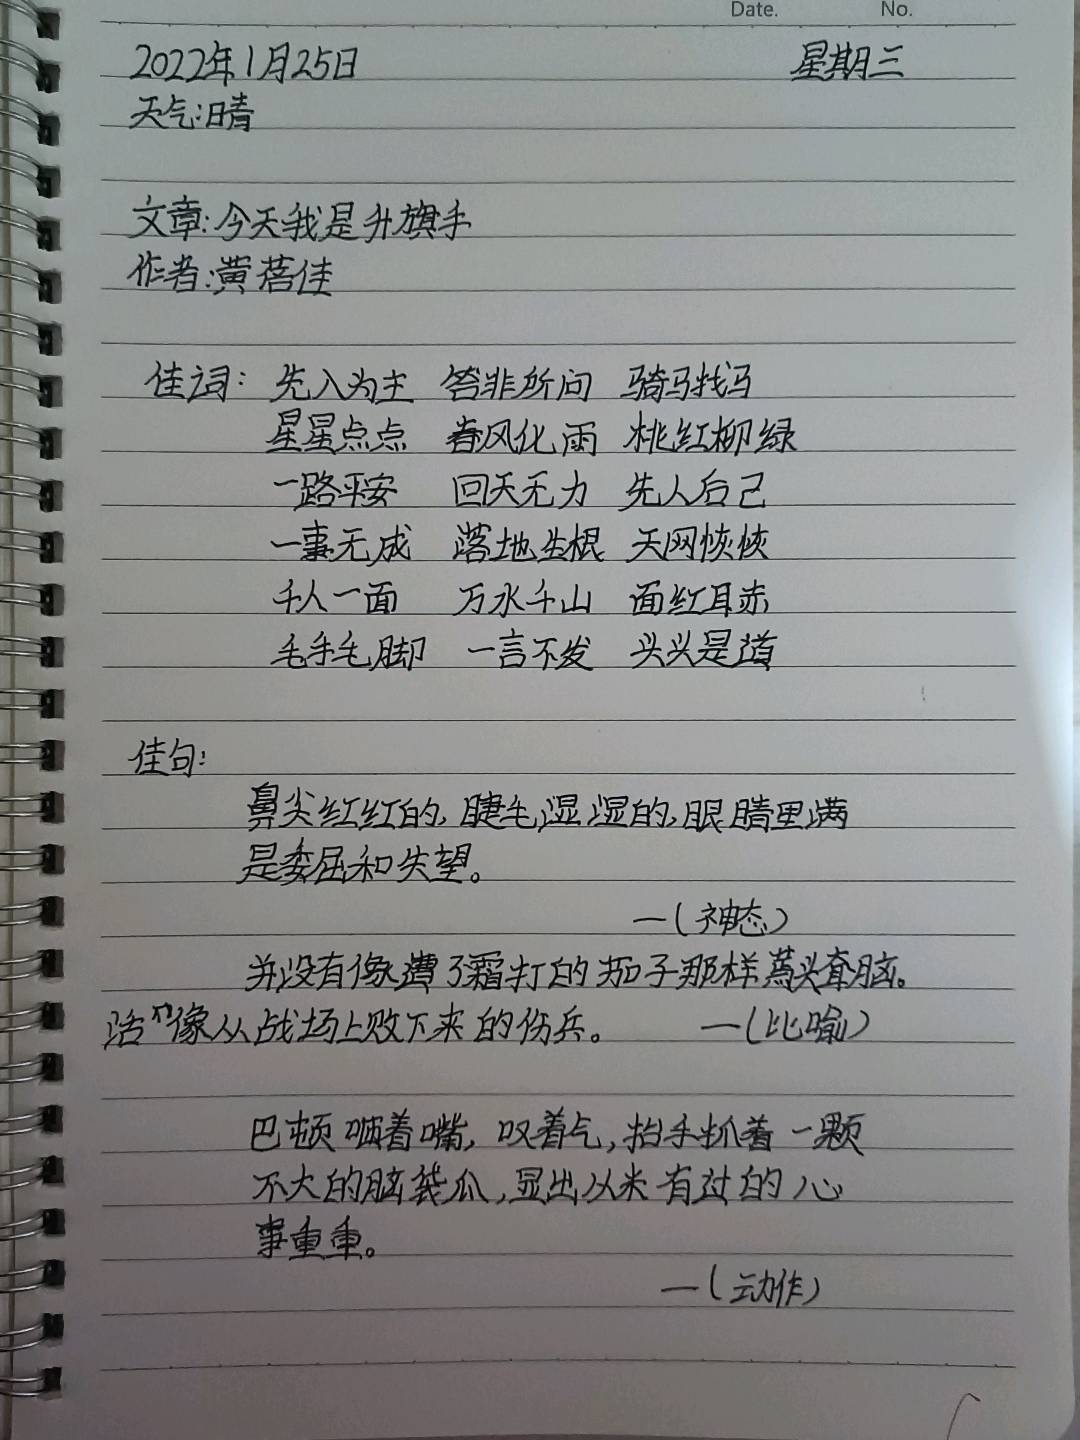 Date. No.
2022年1月25日 星期三
天气:晴
文章:今天我是升旗手
作者:黄蓓佳
佳词: 先入为主 答非所问 骑马找马
星星点点 春风化雨 桃红柳绿
一路平安 回天无力 先人后己
一事无成 落地生根 天网恢恢
千人一面 万水千山 面红耳赤
毛手毛脚 一言不发 头头是道
佳句:
鼻尖红红的,睫毛湿湿的,眼睛里满
是委屈和失望。
—(神态)
并没有像遭了霜打的茄子那样蔫头耷脑。
活像从战场上败下来的伤兵。 —(比喻)
巴顿咂着嘴,叹着气,抬手抓着一颗
不大的脑袋瓜,显出从来有过的心
事重重。
—(动作)